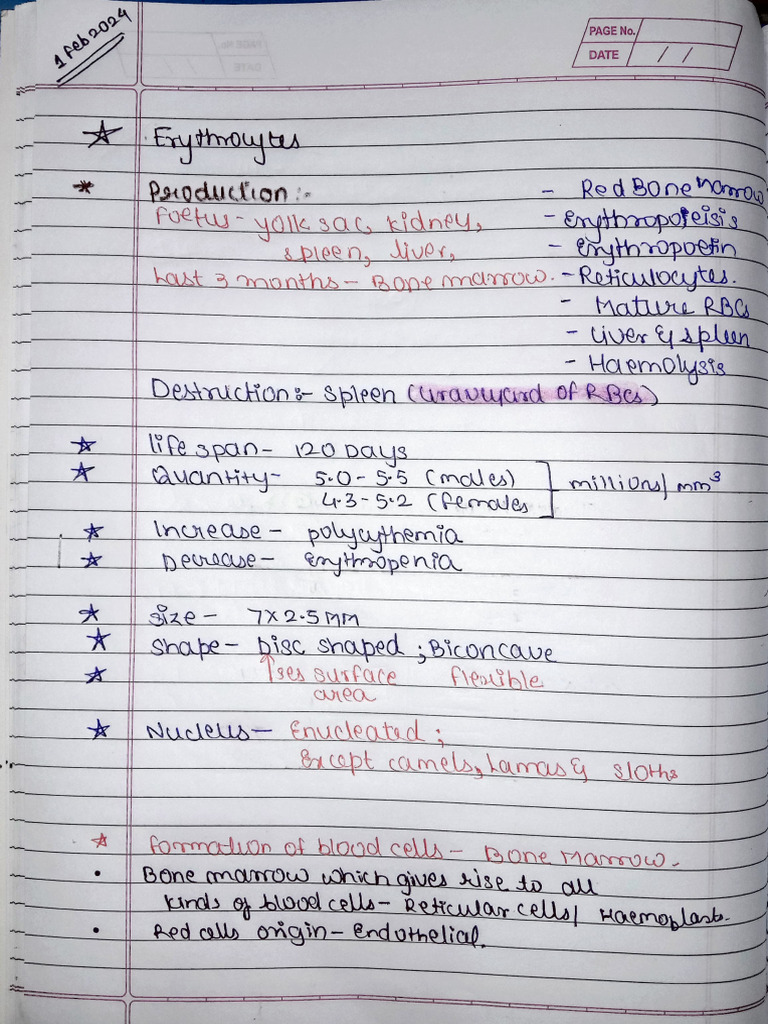 1 Feb 2024
PAGE No.
DATE / /
Erythrocytes
Production:-
Foetus - yolk sac, kidney,
spleen, liver,
Last 3 months - Bone marrow.
- Red Bone marrow
- Erythropoieisis
- Erythropoetin
- Reticulocytes.
- Mature RBCs
- Liver & spleen
- Haemolysis
Destruction:- Spleen (Graveyard of RBCs)
life span - 120 Days
Quantity - 5.0 - 5.5 (males)
4.3 - 5.2 (females
millions/ mm³
Increase - polycythemia
Decrease - Erythropenia
Size - 7 x 2.5 MM
Shape - Disc shaped ; Biconcave
↑ses surface flexible
area
Nucleus - Enucleated ;
Except camels, Lamas & sloths
formation of blood cells - Bone Marrow.
• Bone marrow which gives rise to all
kinds of blood cells - Reticular cells/ Haemoplasts.
• Red cells origin - Endothelial.